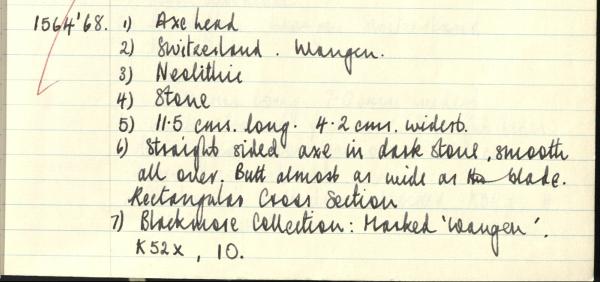 1564'68. 1) Axe head
2) Switzerland. Wangen.
3) Neolithic
4) Stone
5) 11.5 cms. long. 4.2 cms. widest.
6) Straight sided axe in dark stone, smooth
all over. Butt almost as wide as the blade.
Rectangular Cross Section
7) Blackmore Collection: Marked 'Wangen'.
K52x, 10.